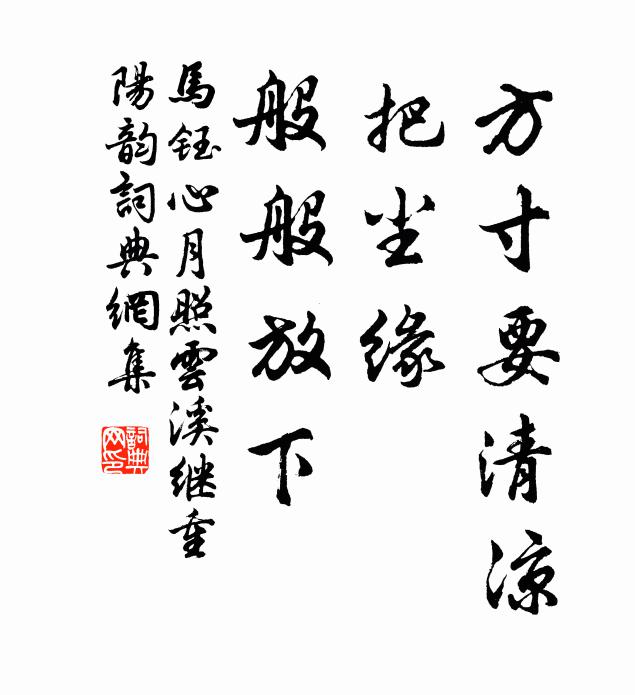 方寸要清涼
把尘緣
般般放下
馬鈺心月照雲溪继重
陽韵詞典網集
詞典网印